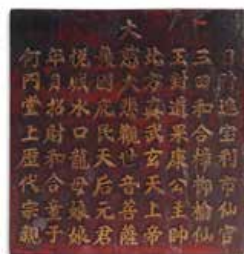 進宝利市仙官
三田和合柳榆仙
玉封道果康公主帥
北方真武玄天上帝
大慈大悲觀世音菩薩
護國庇民天后元君
悅城水口龍母娘娘
年月招財和合童子
何門堂上歷代宗親